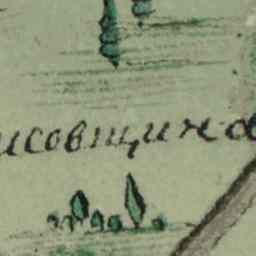 исовщина